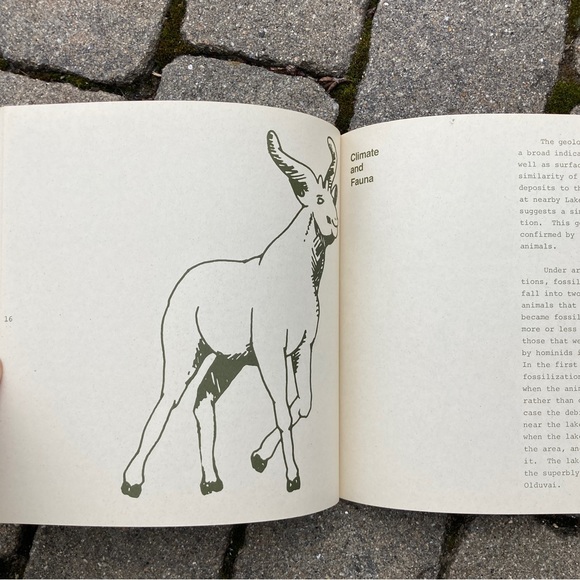 16
Climate
and
Fauna
The geolo
a broad indica
well as surfac
similarity of
deposits to th
at nearby Lake
suggests a sim
tion. This g
confirmed by
animals.
Under ar
tions, fossil
fall into two
animals that
became fossil
more or less
those that we
by hominids i
In the first
fossilization
when the anim
rather than
case the debi
near the lake
when the lake
the area, an
it. The lak
the superbly
Olduvai.